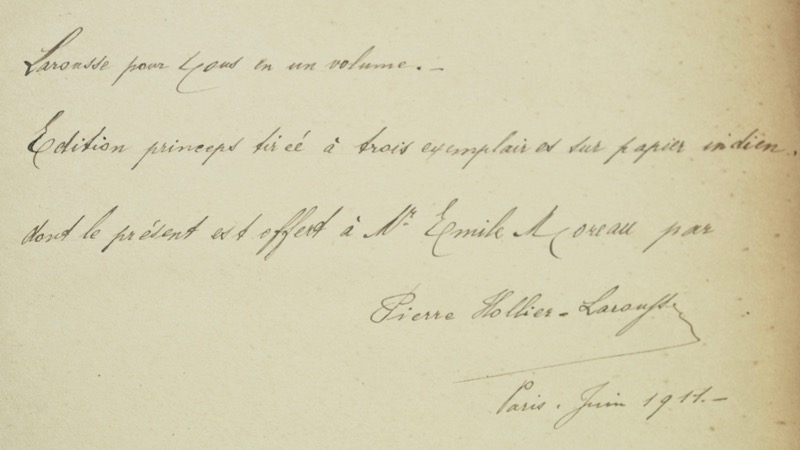 Larousse pour Tous en un volume. _
Edition princeps tirée à trois exemplaires sur papier indien.
dont le présent est offert à Mr Emile Moreau par
Pierre Hollier-Larousse
Paris. Juin 1911._